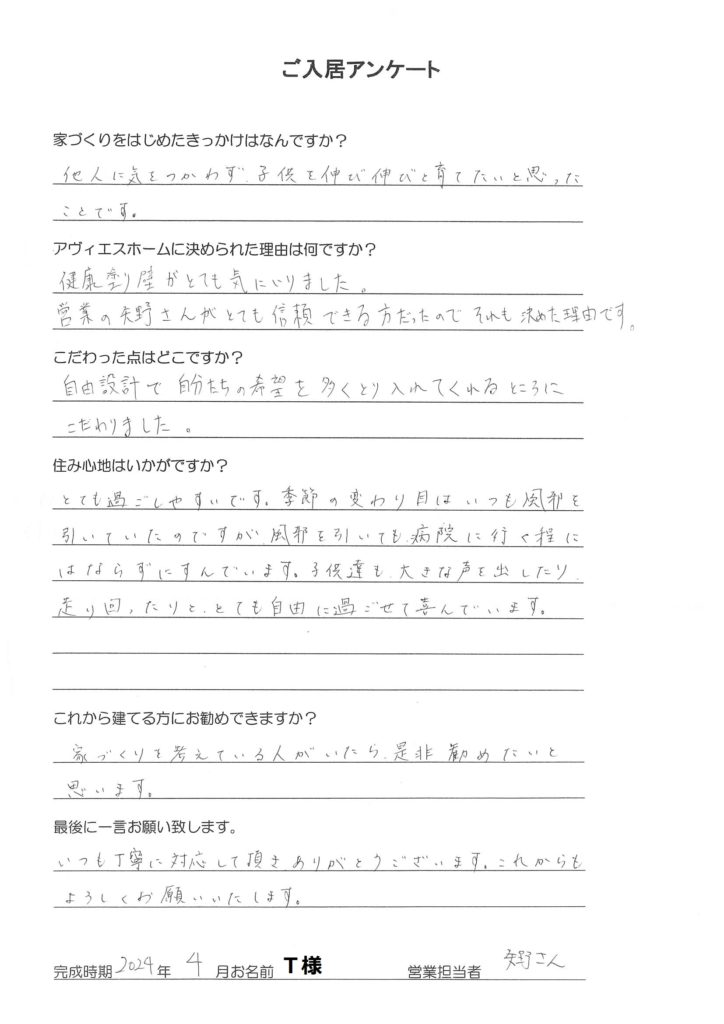 ご入居アンケート
家づくりをはじめたきっかけはなんですか？
他人に気をつかわず、子供を伸び伸びと育てたいと思った
ことです。
アヴィエスホームに決められた理由は何ですか？
健康塗り壁がとても気にいりました。
営業の矢野さんがとても信頼できる方だったのでそれも決めた理由です。
こだわった点はどこですか？
自由設計で自分たちの希望を多くとり入れてくれるところに
こだわりました。
住み心地はいかがですか？
とても過ごしやすいです。季節の変わり目はいつも風邪を
引いていたのですが、風邪を引いても、病院に行く程に
はならずにすんでいます。子供達も、大きな声を出したり、
走り回ったりと、とても自由に過ごせて喜んでいます。
これから建てる方にお勧めできますか？
家づくりを考えている人がいたら、是非勧めたいと
思います。
最後に一言お願い致します。
いつも丁寧に対応して頂き、ありがとうございます。これからも
よろしくお願いいたします。
完成時期 2024 年 4 月お名前 T様 営業担当者 矢野さん